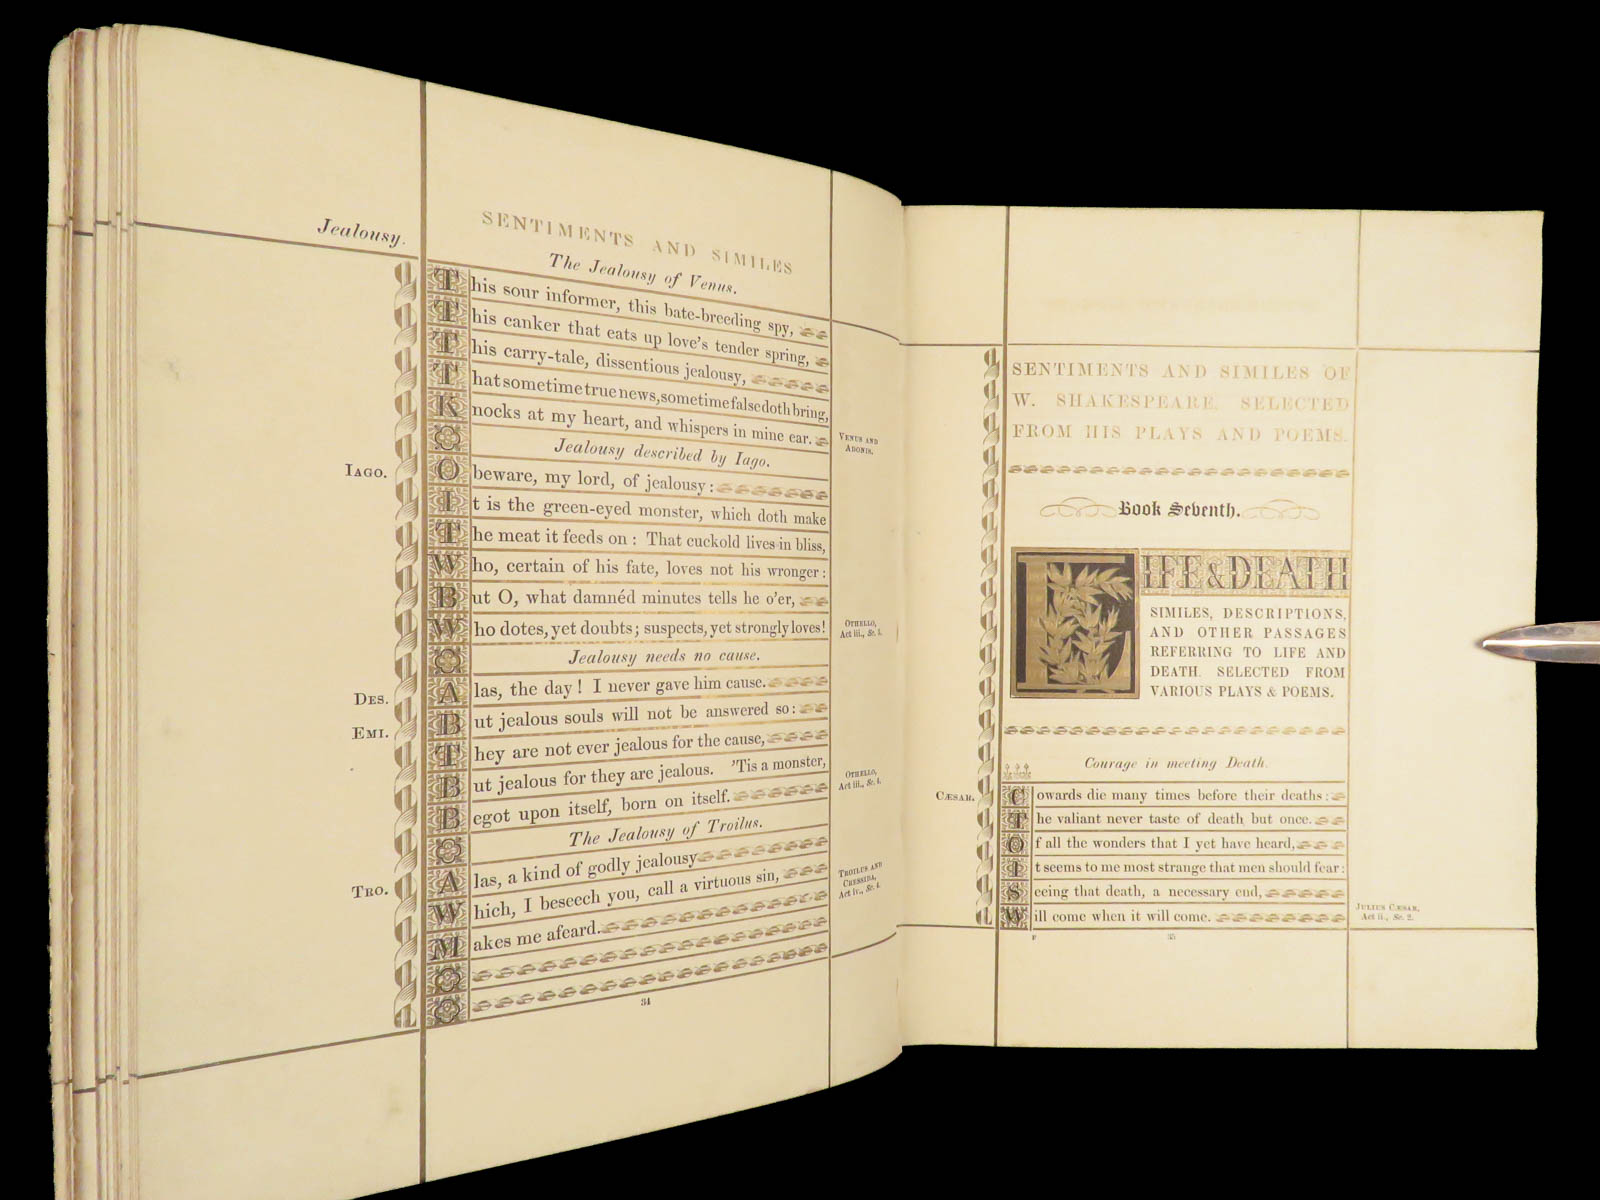 Jealousy.
SENTIMENTS AND SIMILES
The Jealousy of Venus.
This sour informer, this bate-breeding spy,
This canker that eats up love's tender spring,
This carry-tale, dissentious jealousy,
That sometime true news, sometime false doth bring,
Knocks at my heart, and whispers in mine ear.
VENUS AND
ADONIS.
Jealousy described by Iago.
IAGO.
O beware, my lord, of jealousy:
It is the green-eyed monster, which doth make
The meat it feeds on: That cuckold lives in bliss,
Who, certain of his fate, loves not his wronger:
But O, what damnéd minutes tells he o'er,
Who dotes, yet doubts; suspects, yet strongly loves!
OTHELLO,
Act iii., Sc. 3.
Jealousy needs no cause.
DES.
Alas, the day! I never gave him cause.
EMI.
But jealous souls will not be answered so:
They are not ever jealous for the cause,
But jealous for they are jealous. 'Tis a monster,
Begot upon itself, born on itself.
OTHELLO,
Act iii., Sc. 4.
The Jealousy of Troilus.
TRO.
Alas, a kind of godly jealousy
Which, I beseech you, call a virtuous sin,
Makes me afeard.
TROILUS AND
CRESSIDA,
Act iv., Sc. 4.
34
SENTIMENTS AND SIMILES OF
W. SHAKESPEARE, SELECTED
FROM HIS PLAYS AND POEMS.
Book Seventh.
LIFE & DEATH
SIMILES, DESCRIPTIONS,
AND OTHER PASSAGES
REFERRING TO LIFE AND
DEATH. SELECTED FROM
VARIOUS PLAYS & POEMS.
Courage in meeting Death.
CÆSAR.
Cowards die many times before their deaths:
The valiant never taste of death but once.
Of all the wonders that I yet have heard,
It seems to me most strange that men should fear:
Seeing that death, a necessary end,
Will come when it will come.
JULIUS CÆSAR,
Act ii., Sc. 2.
F
35